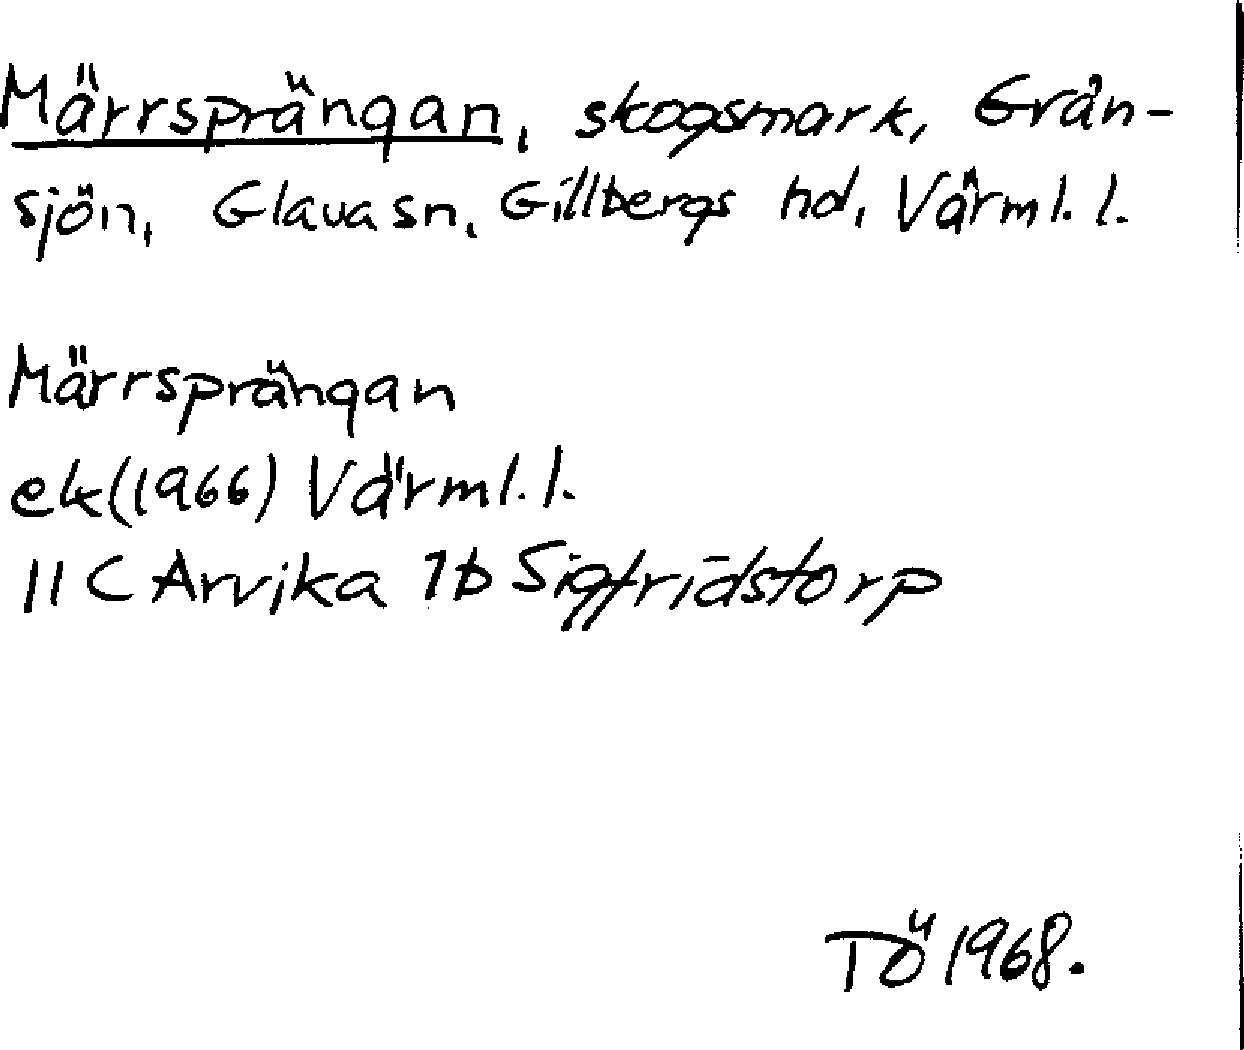 Märrsprängan, skogsmark, Grän-
sjön, Glava sn, Gillbergs hd, Värml. l.
Märrsprängan
ek (1966) Värml. l.
11 C Arvika 1b Sigfridstorp
TÖ 1968.